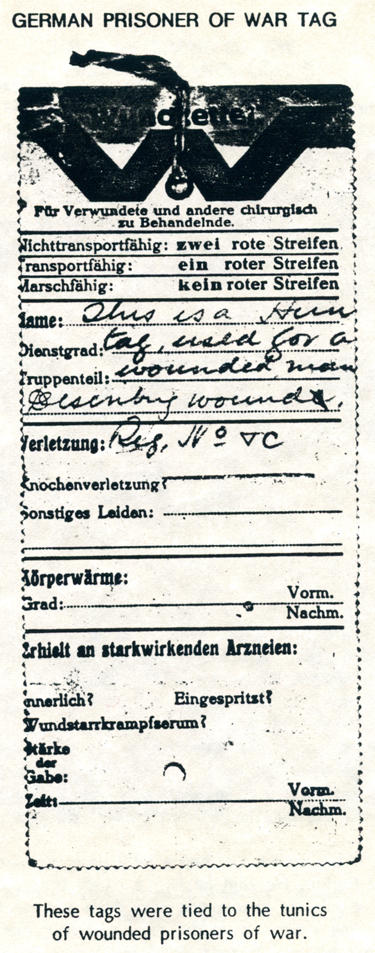 GERMAN PRISONER OF WAR TAG
Wundzettel
Für Verwundete und andere chirurgisch
zu Behandelnde.
Nichttransportfähig: zwei rote Streifen
Transportfähig: ein roter Streifen
Marschfähig: kein roter Streifen
Name: This is a Hun
Dienstgrad: tag, used for a
Truppenteil: wounded man
Describing wounds,
Verletzung: Reg. No &c
Knochenverletzung?
Sonstiges Leiden:
Körperwärme:
Vorm.
Grad:
Nachm.
Erhielt an starkwirkenden Arzneien:
nnerlich? Eingespritzt?
Wundstarrkrampfserum?
Stärke
der
Gabe:
Vorm.
Zeit:
Nachm.
These tags were tied to the tunics
of wounded prisoners of war.